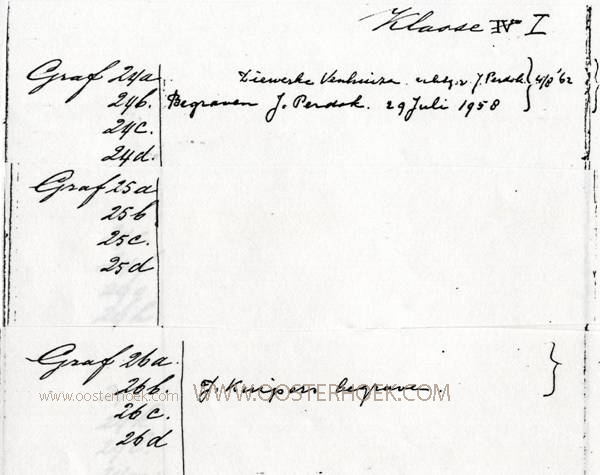 Klasse IV I
Graf 24a Diewerke Venhuizen J. Perdok 4/8 '62
24b. Begraven J. Perdok. 29 Juli 1958
24c.
24d.
Graf 25a
25b
25c.
25d
Graf 26a.
26b. J. Kuipers begraven.
www.oosterhoek.com WWW.OOSTERHOEK.COM
26c.
26d